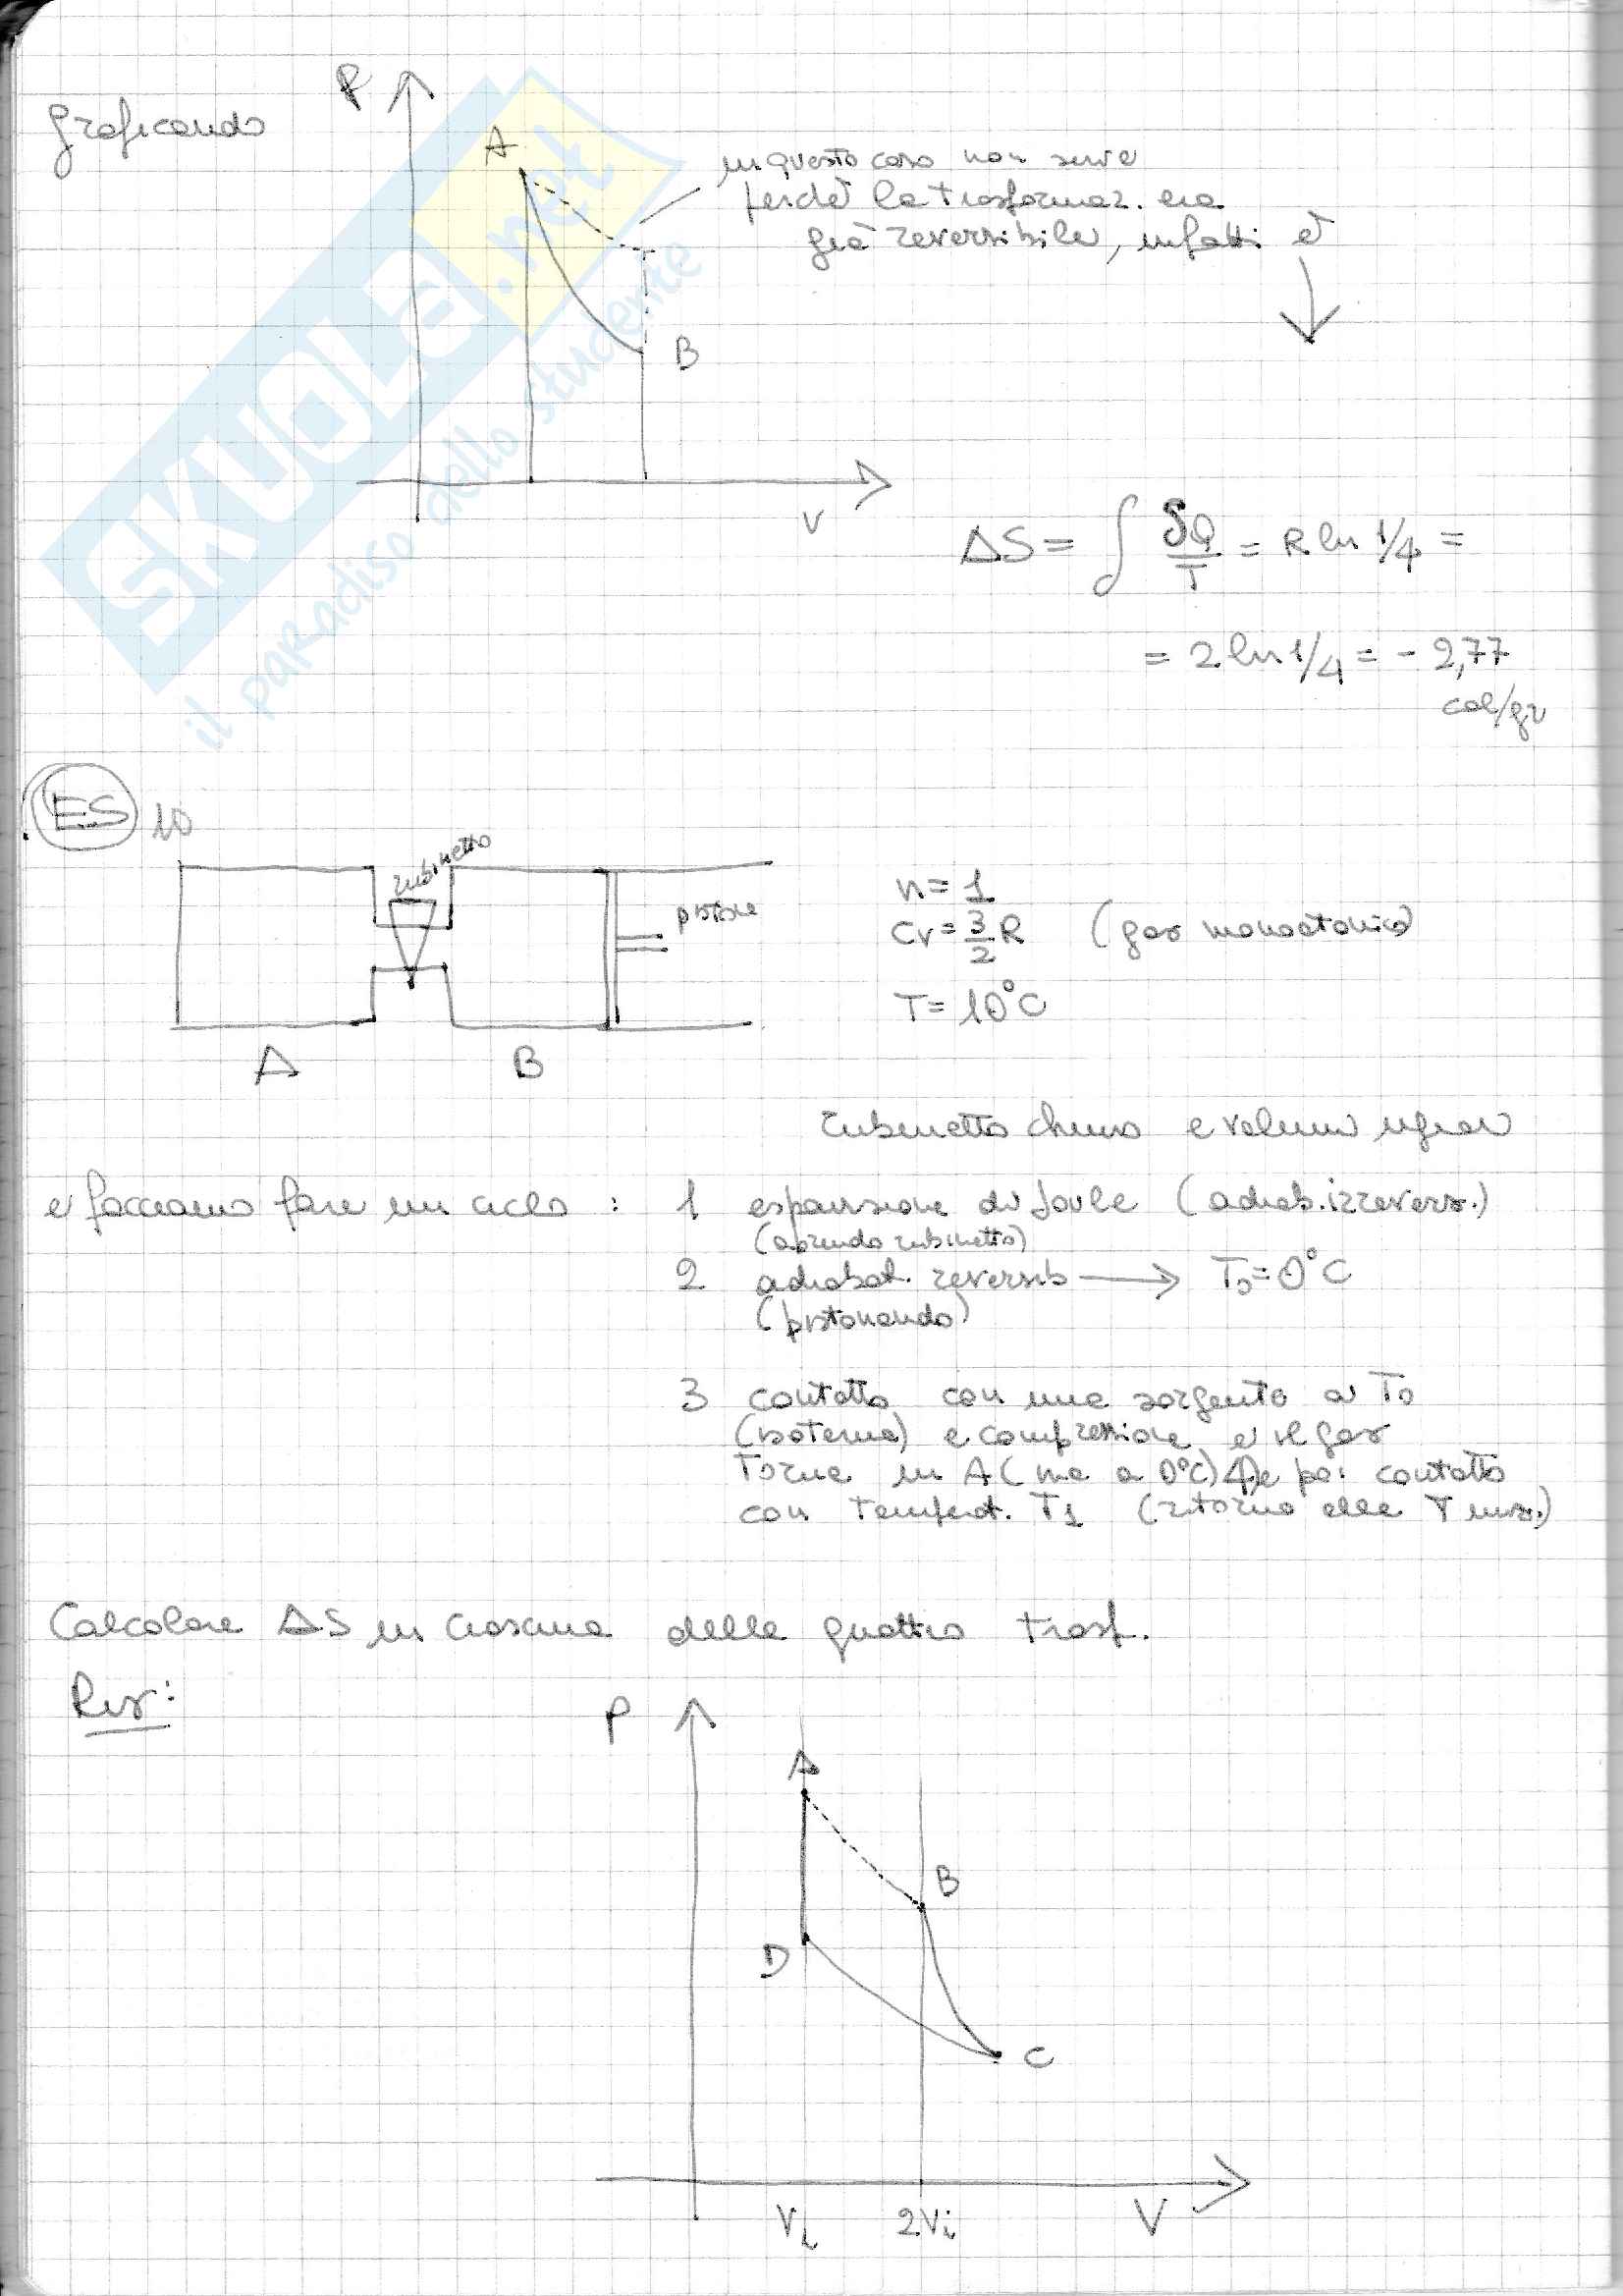 Graficando
P
A
in questo caso non serve
perchè la trasformaz. era
già reversibile, infatti è
B
V
ΔS = ∫ δQ/T = R ln 1/4 =
= 2 ln 1/4 = - 2,77
cal/gr
SKUOLA.net
il paradiso dello studente
ES 10
rubinetto
pistone
A
B
n = 1
Cv = 3/2 R (gas monoatomico)
T = 10°C
rubinetto chiuso e volumi uguali
e facciamo fare un ciclo : 1 espansione di Joule (adiab. irrevers.)
(aprendo rubinetto)
2 adiabat. reversib → T0 = 0°C
(pistonando)
3 contatto con una sorgente a T0
(isoterma) e compressione e il gas
torna in A (ma a 0°C) 4 e poi contatto
con temperat. T1 (ritorno alla T iniz.)
Calcolare ΔS in ciascuna delle quattro trasf.
Ris:
P
A
B
D
C
Vi
2Vi
V